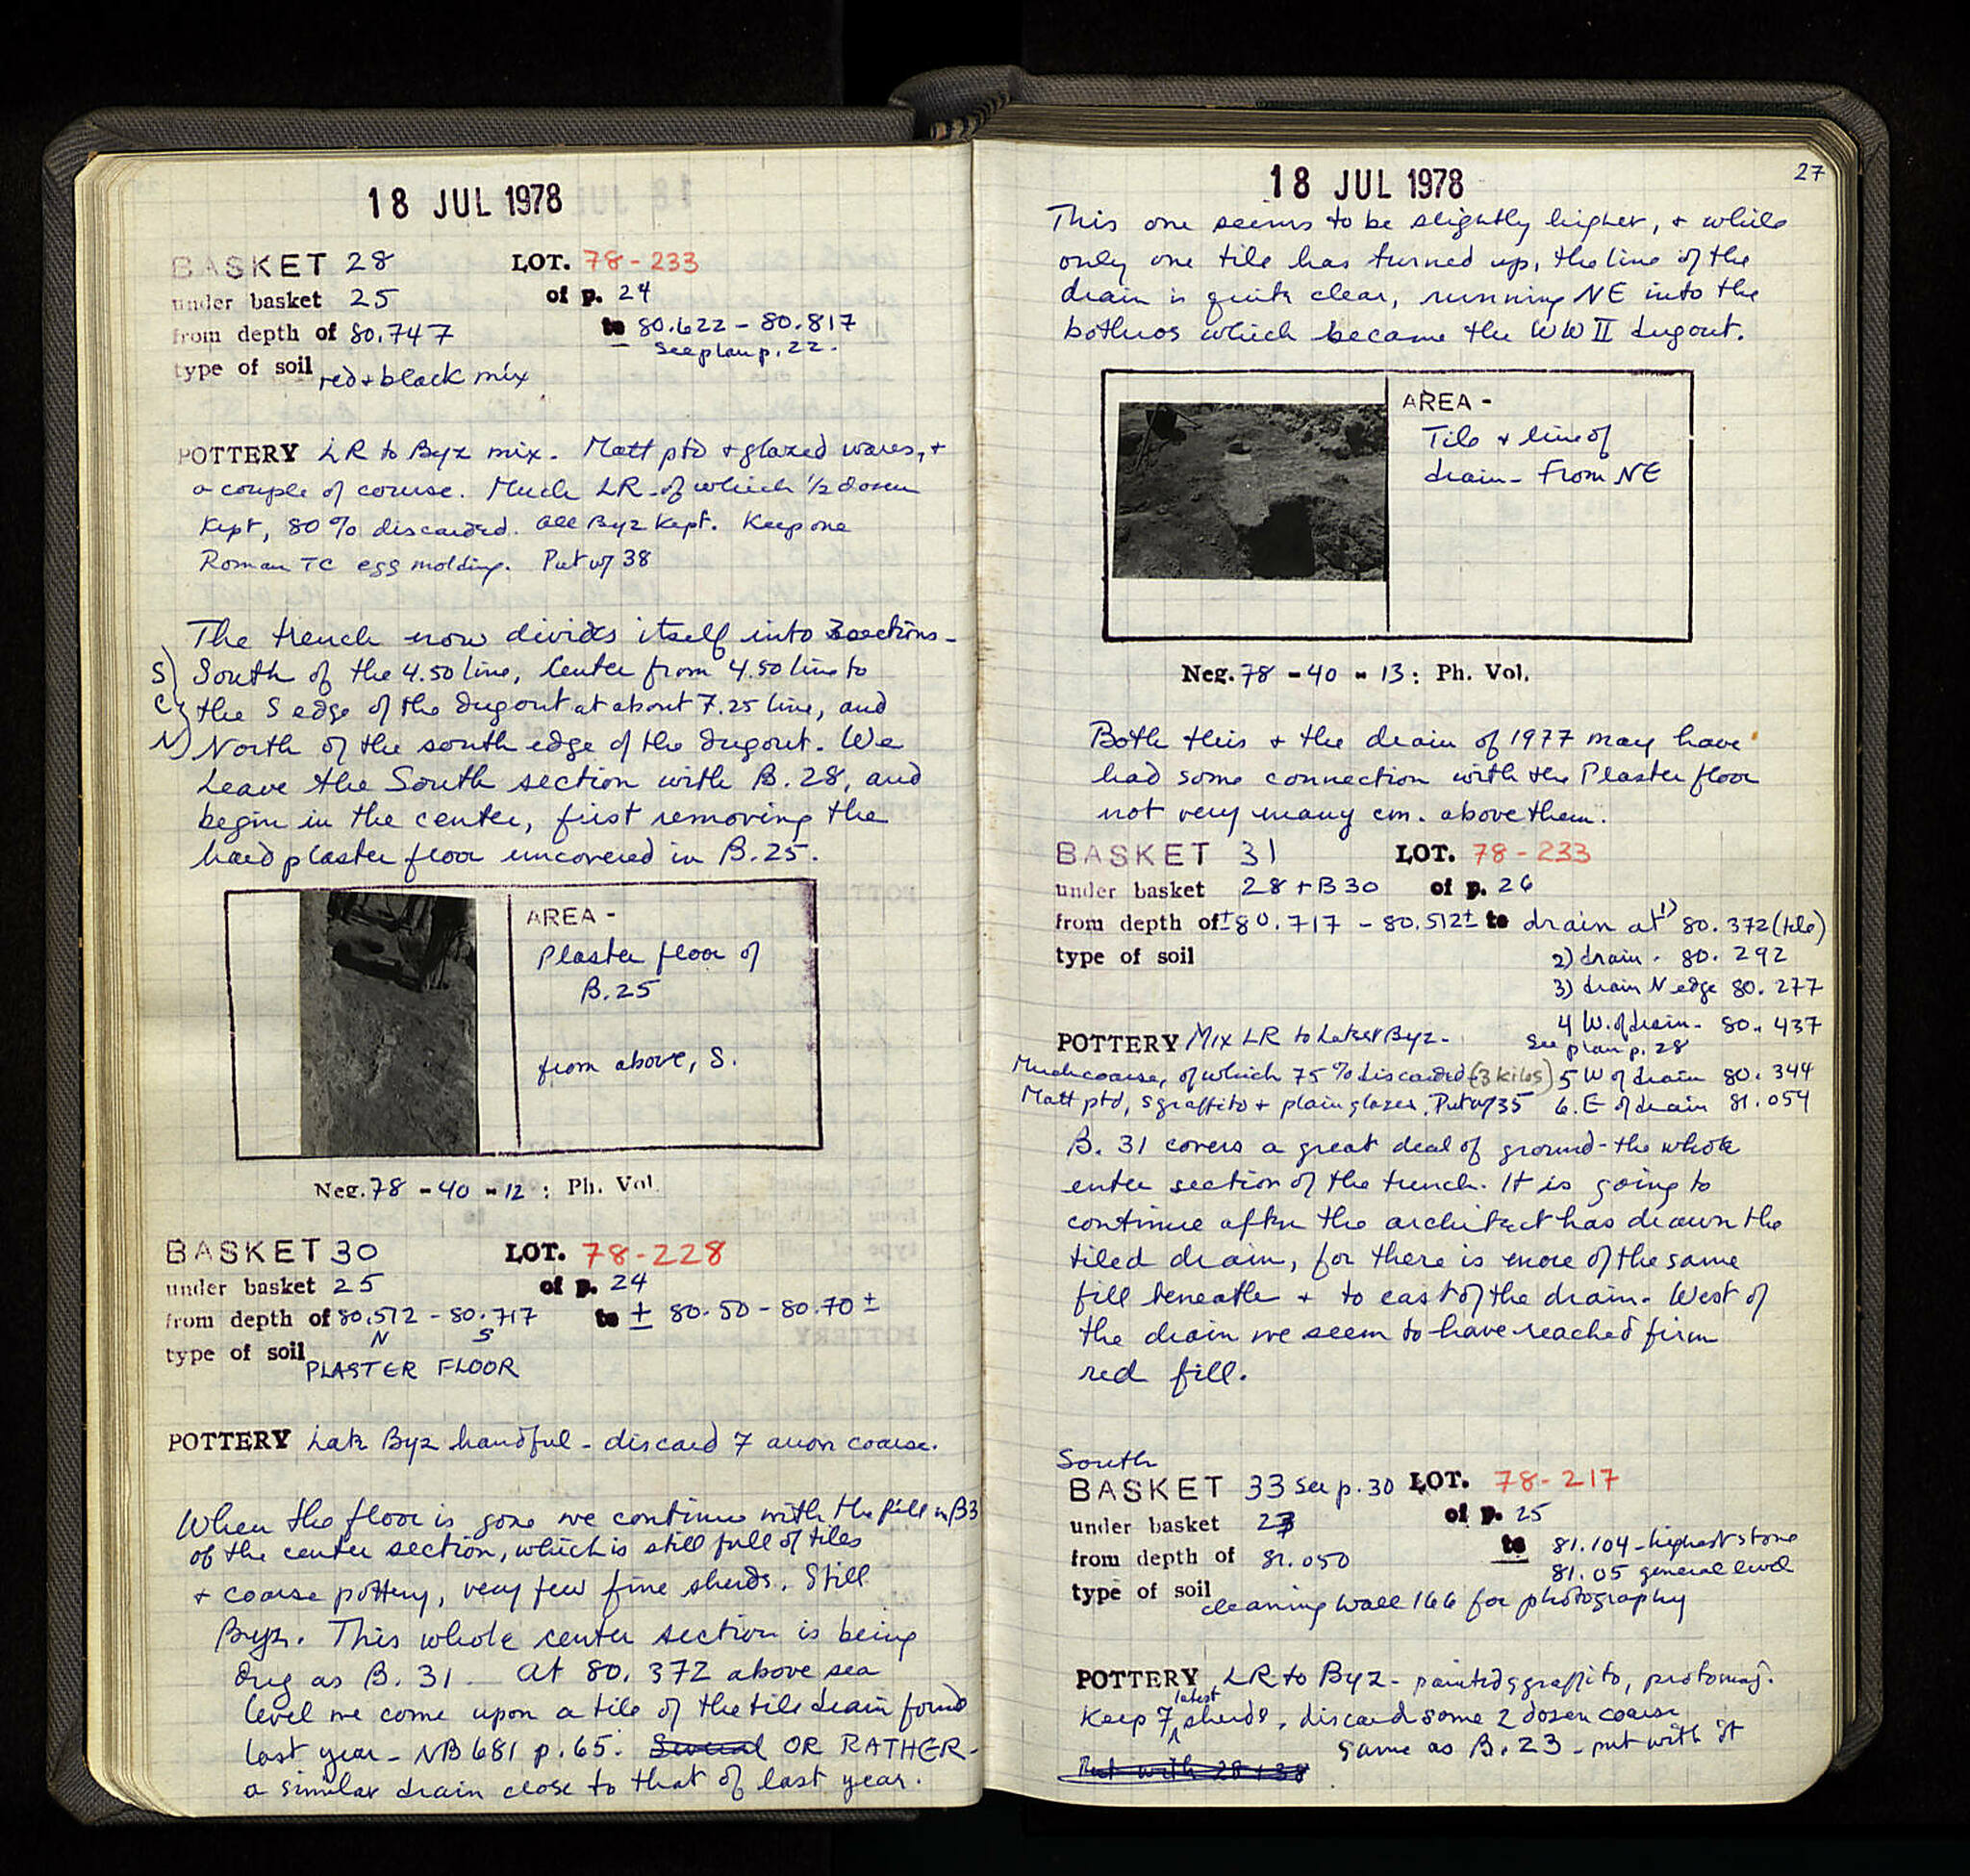 18 JUL 1978
BASKET 28 LOT. 78-233
under basket 25 of p. 24
from depth of 80.747 to 80.622 - 80.817
See plan p. 22.
type of soil red + black mix
POTTERY LR to Byz mix. Matt ptd + glazed wares, +
a couple of course. Much LR - of which 1/2 dozen
Kept, 80% discarded. All Byz Kept. Keep one
Roman TC egg molding. Put w/ 38
The trench now divides itself into 3 sections -
S) South of the 4.50 line, Center from 4.50 line to
C) the S edge of the dugout at about 7.25 line, and
N) North of the south edge of the dugout. We
Leave the South section with B. 28, and
begin in the center, first removing the
hard plaster floor uncovered in B. 25.
AREA -
Plaster floor of
B. 25
from above, S.
Neg. 78 - 40 - 12 : Ph. Vol.
BASKET 30 LOT. 78-228
under basket 25 of p. 24
from depth of 80.512 - 80.717 to ± 80.50 - 80.70 ±
N S
type of soil PLASTER FLOOR
POTTERY Late Byz handful - discard 7 anon coarse.
When the floor is gone we continue with the fill in B3
of the center section, which is still full of tiles
+ coarse pottery, very few fine sherds. Still
Byz. This whole center section is being
dug as B. 31 - At 80.372 above sea
level we come upon a tile of the tile drain found
last year - NB 681 p. 65. Several OR RATHER -
a similar drain close to that of last year.
27
18 JUL 1978
This one seems to be slightly higher, + while
only one tile has turned up, the line of the
drain is quite clear, running NE into the
bothros which became the WW II dugout.
AREA -
Tile + line of
drain - From NE
Neg. 78 - 40 - 13 : Ph. Vol.
Both this + the drain of 1977 may have
had some connection with the Plaster floor
not very many cm. above them.
BASKET 31 LOT. 78-233
under basket 28 + B 30 of p. 26
from depth of ± 80.717 - 80.512 ± to drain at 1) 80.372 (tile)
type of soil 2) drain - 80.292
3) drain N edge 80.277
4 W. of drain - 80.437
See plan p. 28
POTTERY Mix LR to Latest Byz -
Much coarse, of which 75% discarded (3 kilos) 5 W of drain 80.344
Matt ptd, sgraffito + plain glazes. Put w/ 35 6. E of drain 81.054
B. 31 covers a great deal of ground - the whole
enter section of the trench. It is going to
continue after the architect has drawn the
tiled drain, for there is more of the same
fill beneath + to east of the drain. West of
the drain we seem to have reached firm
red fill.
South
BASKET 33 See p. 30 LOT. 78-217
under basket 23 of p. 25
from depth of 81.050 to 81.104 - highest stone
81.05 general level
type of soil cleaning Wall 166 for photography
POTTERY LR to Byz - painted sgraffito, protomaj.
Keep 7 latest sherds, discard some 2 dozen coarse
Same as B. 23 - put with it
Put with 28 + 38